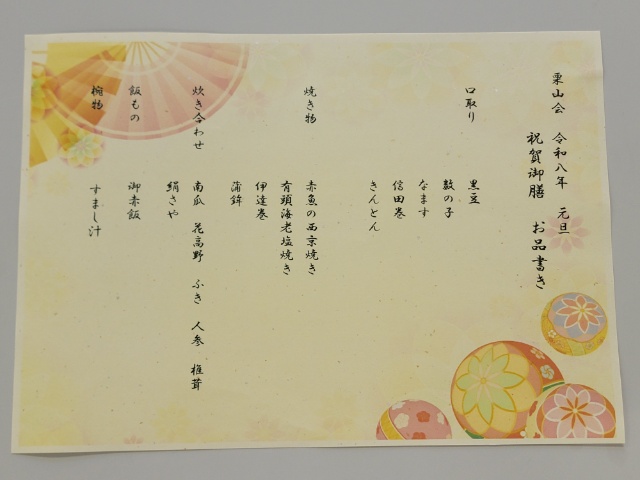 栗山会　令和八年　元旦
祝賀御膳　お品書き
口取り
黒豆
数の子
なます
信田巻
きんとん
焼き物
赤魚の西京焼き
有頭海老塩焼き
伊達巻
蒲鉾
炊き合わせ
南瓜　花高野　ふき　人参　椎茸
絹さや
飯もの
御赤飯
椀物
すまし汁